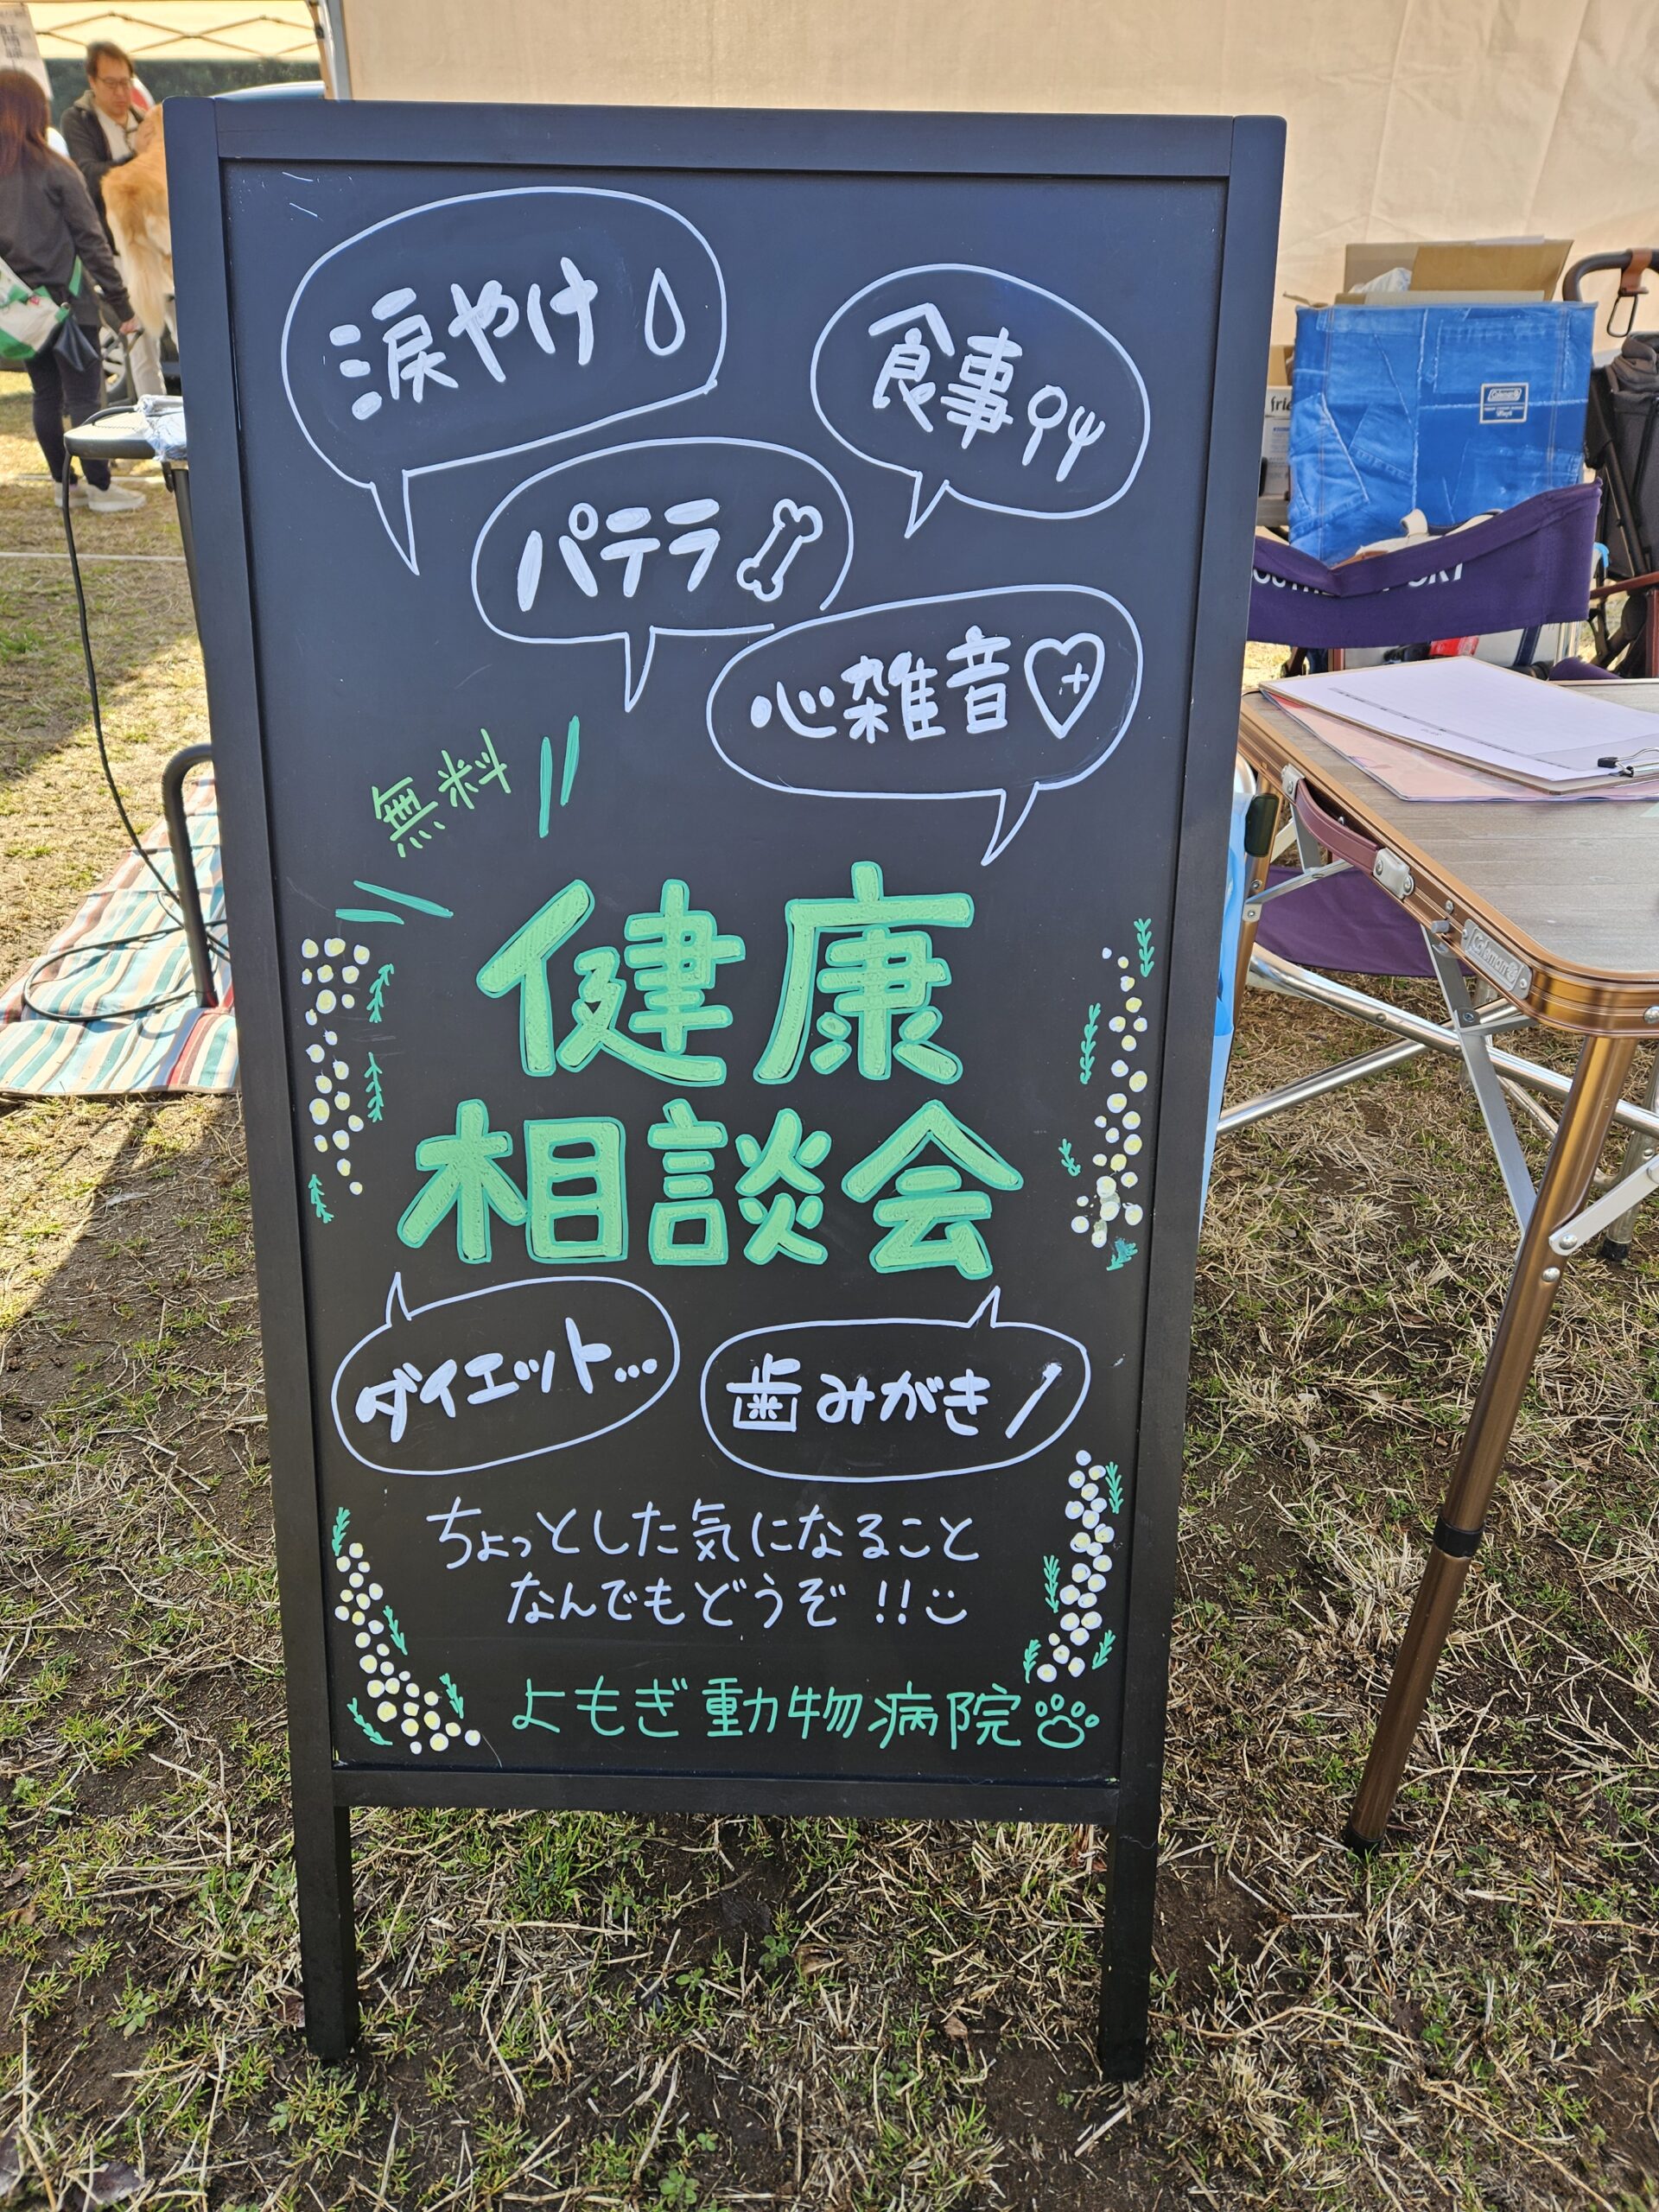 涙やけ
食事
パテラ
心雑音
無料
健康
相談会
ダイエット...
歯みがき
ちょっとした気になること
なんでもどうぞ!!
よもぎ動物病院
Coleman
Coleman